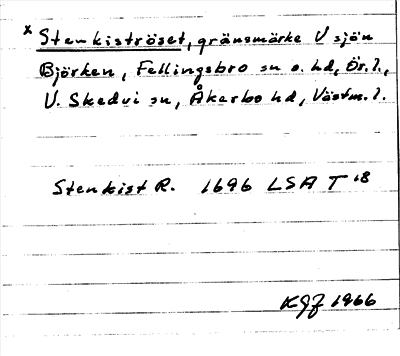 x Stenkiströset, gränsmärke V sjön
Björken, Fellingsbro sn o. hd, Ör. l.,
V. Skedvi sn, Åkerbo hd, Västm. l.
Stenkist R. 1696 LSA T 18
KGF 1966